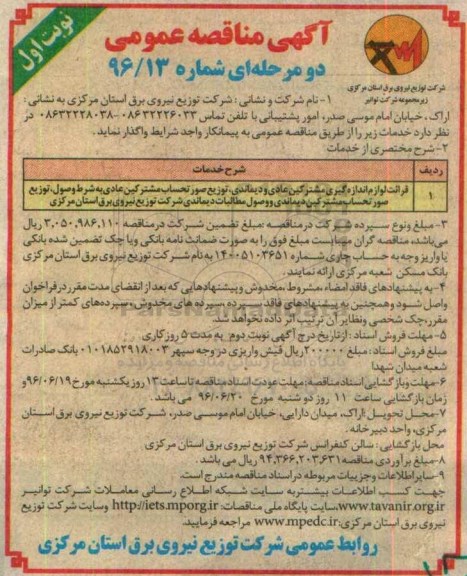 نوبت اول
آگهی مناقصه عمومی
دو مرحله‌ای شماره ۹۶/۱۳
شرکت توزیع نیروی برق استان مرکزی
زیرمجموعه شرکت توانیر
۱- نام شرکت و نشانی: شرکت توزیع نیروی برق استان مرکزی به نشانی:
اراک، خیابان امام موسی صدر، امور پشتیبانی با تلفن تماس ۰۸۶۳۲۲۲۶۰۳۳-۰۸۶۳۲۲۲۸۰۳۸ در
نظر دارد خدمات زیر را از طریق مناقصه عمومی به پیمانکار واجد شرایط واگذار نماید.
۲- شرح مختصری از خدمات
ردیف شرح خدمات
۱ قرائت لوازم اندازه گیری مشترکین عادی و دیماندی، توزیع صورتحساب مشترکین عادی به شرط وصول، توزیع
صورتحساب مشترکین دیماندی و وصول مطالبات دیماندی شرکت توزیع نیروی برق استان مرکزی
۳- مبلغ ونوع سپرده شرکت در مناقصه: مبلغ تضمین شرکت در مناقصه ۳,۰۵۰,۹۸۶,۱۱۰ ریال
می‌باشد، مناقصه گران میبایست مبلغ فوق را به صورت ضمانت نامه بانکی ویا چک تضمین شده بانکی
یا واریز وجه به حساب جاری شماره ۱۴۰۰۵۱۰۳۶۵۱ به نام شرکت توزیع نیروی برق استان مرکزی
بانک مسکن شعبه مرکزی ارائه نمایند.
۴- به پیشنهادهای فاقد امضاء، مشروط، مخدوش و پیشنهادهایی که بعد از انقضای مدت مقرر در فراخوان
واصل شود و همچنین به پیشنهادهای فاقد سپرده، سپرده های مخدوش، سپرده‌های کمتر از میزان
مقرر، چک شخصی ونظایر آن ترتیب اثر داده نخواهد شد.
۵- مهلت فروش اسناد: از تاریخ درج آگهی نوبت دوم به مدت ۵ روز کاری
مبلغ فروش اسناد: مبلغ ۲۰۰۰۰۰ ریال فیش واریزی در وجه سپهر ۰۱۰۱۸۵۲۹۱۸۰۰۳ بانک صادرات
شعبه میدان شهدا
۶- مهلت وبازگشایی اسناد مناقصه: مهلت عودت اسناد مناقصه تا ساعت ۱۳ روز یکشنبه مورخ ۹۶/۰۶/۱۹ و
زمان بازگشایی ساعت ۱۱ روز دوشنبه مورخ ۹۶/۰۶/۲۰ می باشد.
۷- محل تحویل: اراک، میدان دارایی، خیابان امام موسی صدر، شرکت توزیع نیروی برق استان
مرکزی، واحد دبیرخانه.
محل بازگشایی: سالن کنفرانس شرکت توزیع نیروی برق استان مرکزی
۸- مبلغ برآوردی مناقصه ۹۴,۳۶۶,۲۰۳,۶۳۱ ریال می باشد.
۹- سایر اطلاعات و جزییات مربوطه در اسناد مناقصه مندرج است.
جهت کسب اطلاعات بیشتر به سایت شبکه اطلاع رسانی معاملات شرکت توانیر
www.tavanir.org.ir، سایت پایگاه ملی مناقصات: http://iets.mporg.ir وسایت شرکت توزیع
نیروی برق استان مرکزی: www.mpedc.ir مراجعه فرمایید.
روابط عمومی شرکت توزیع نیروی برق استان مرکزی